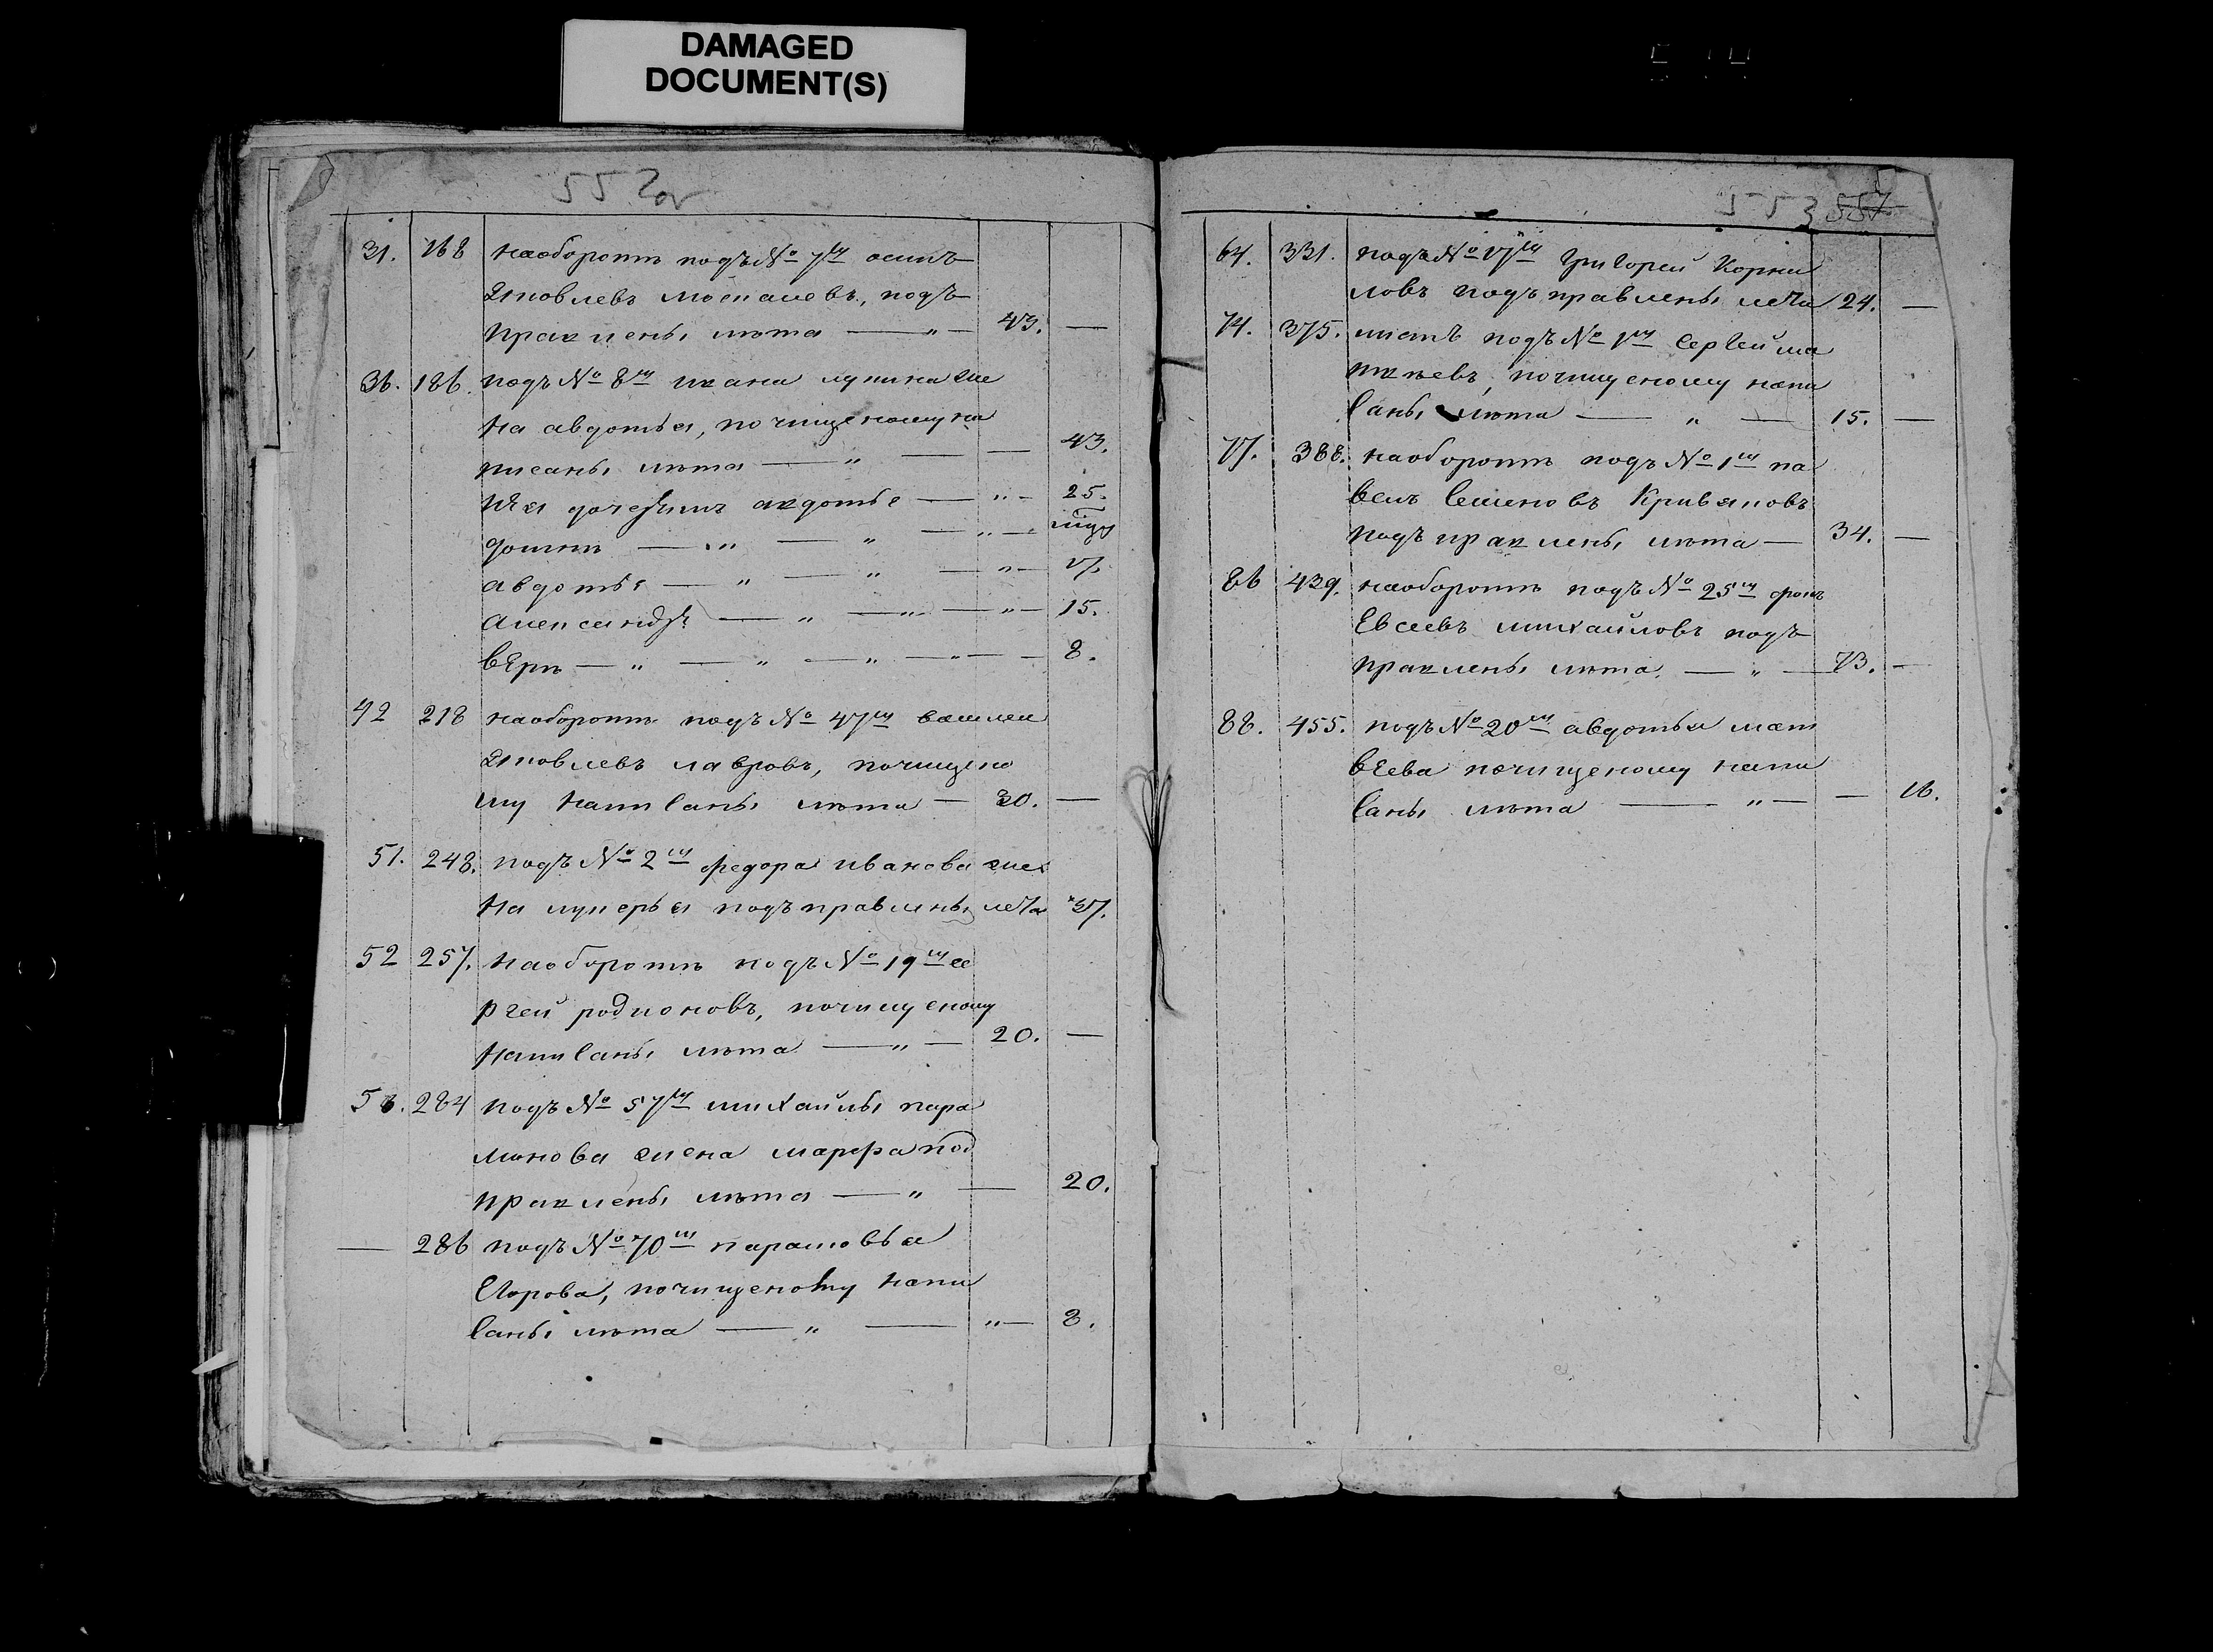 DAMAGED
DOCUMENT(S)
552об
31. 168 наоборотѣ подъ № 7мъ осипъ
Яковлевъ подъ
правлены лѣта — " — 43. —
36. 186. подъ № 8мъ ивана лупина же
на авдотья, почищеному на
писаны лѣта — " — — 43.
дочерямъ авдотье — " — 25.
— " — " — " —
авдотье — " — " — " — 17.
александрѣ — " — " — " — 15.
вѣрѣ — " — " — " — " — 8.
42 218 наоборотѣ подъ № 47мъ василеи
Яковлевъ лавровъ, почищено
му написаны лѣта — 30. —
51. 248. подъ № 2мъ федора иванова же
на лукерья подъправлены лета 37.
52 257. наоборотѣ подъ № 19мъ се
ргеи родионовъ, почищеному
написаны лѣта — " — 20. —
56. 284 подъ № 57мъ михаилы пара
монова жена марфа под
правлены лѣта — " — 20.
— 286 подъ № 70мъ парасковья
Егорова, почищеному напи
саны лѣта — " — " — 8.
553 557
64. 331. подъ № 17мъ Григореи Корни
ловъ подъправлены лета 24. —
74. 375. листъ подъ № 1мъ Сергеи ма
твѣевъ, почищеному напи
саны лѣта — " — 15. —
77. 388. наоборотѣ подъ № 1мъ па
велъ Семеновъ Кривяковъ
подъправлены лѣта — 34. —
86 439. наоборотѣ подъ № 25мъ
Евсеевъ михаиловъ подъ
правлены лѣта. — " — 73. —
88. 455. подъ № 20мъ авдотья мат
вѣева почищеному напи
саны лѣта — " — — 16.